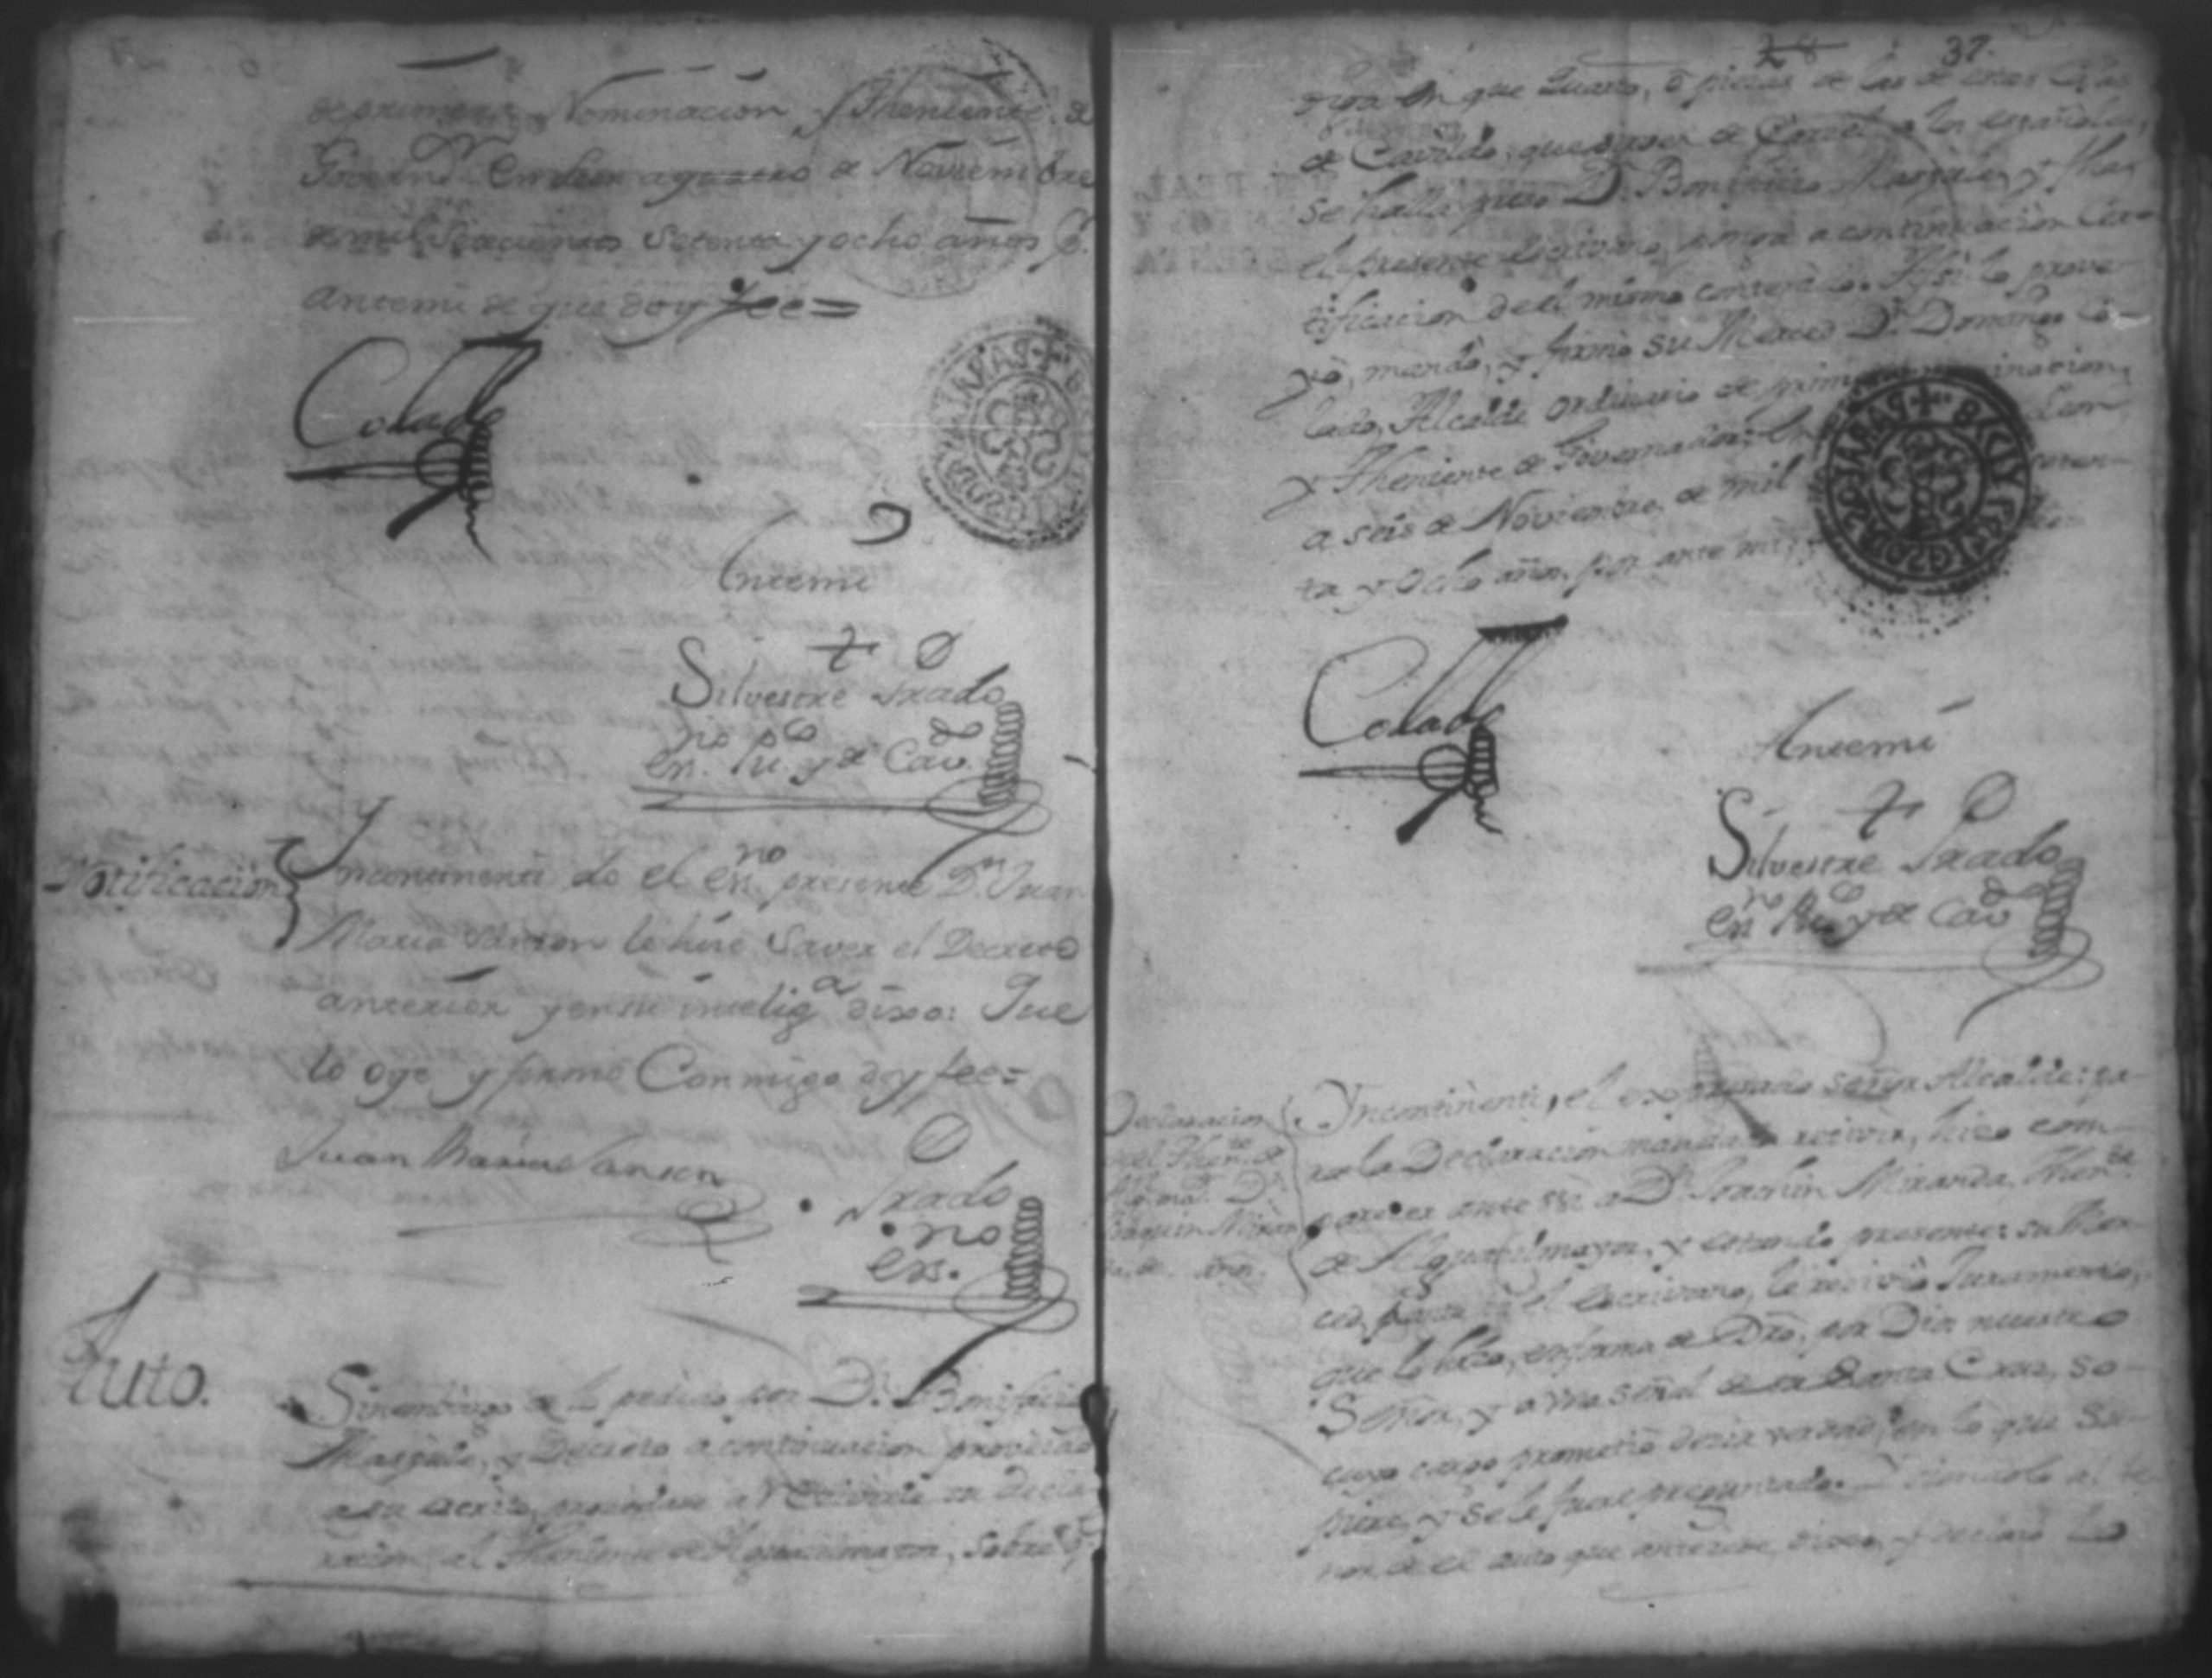 de primera Nominacion y Theniente de
Govern.or en ella a quatro de Noviembre
de mil Setecientos Setenta y ocho años
Antemi de que doy fee=
Colado
Antemi
Silvestre Prado
en.no Pu.co y de Cav.do
Notificacion
Yncontinenti Yo el en.no presente D.n Juan
Maria Sanson le hise Saver el Decreto
anterior y en su intelig.a dixo: Que
lo oye y firmó Conmigo doy fee=
Juan Maria Sanson
Prado
ess.no
Auto.
Sinembargo de lo pedido por D.n Bonifacio
y Decreto a continuacion proveido
a su escrito, su Decla-
racion al Theniente de Alguacil mayor, sobre q.e
37.
diga en que Quarto, ó piesas de las de estas Casas
de Cavildo, que sirven de Carcel a los españoles,
se halla preso D.n Bonifacio
el presente escrivano, ponga a continuacion Cer-
tificacion de el mismo contenido. Asi lo prove-
yó, mandó, y firmó su Merced D.n Domingo Co-
lado, Alcalde ordinario de primera nominacion,
y Theniente de Governador
a seis de Noviembre de mil
ta y Ocho años, por ante mi
Colado
Antemi
Silvestre Prado
en.no Pu.co y de Cav.do
Declaracion
del Then.te de
Alg.l ma.r D.n
Joaquin Miran-
da
Yncontinenti, el expresado señor Alcalde: pa-
ra la Declaracion mandada recivir, hizo com-
parecer ante si a D.n Joachin Miranda, Then.te
de Alguacil mayor, y estando presente su Mer-
ced, por ante mi el escrivano, le recivió Juramento,
que lo hizo, en forma de Dro, por Dios nuestro
Señor, y a una señal de su Santa Cruz, so
cuyo cargo prometió decir verdad, en lo que su-
piere, y se le fuere preguntado. Y siendolo al te-
nor de el auto que antecede, dixo, y declaró